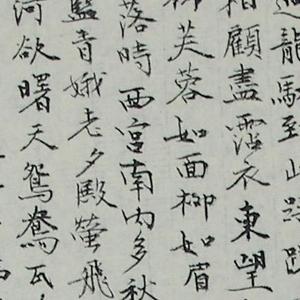 龍馭至此躊躇
相顧盡霑衣東望
柳芙蓉如面柳如眉
落時西宮南內多秋
監青娥老夕殿螢飛
河欲曙天鴛鴦瓦